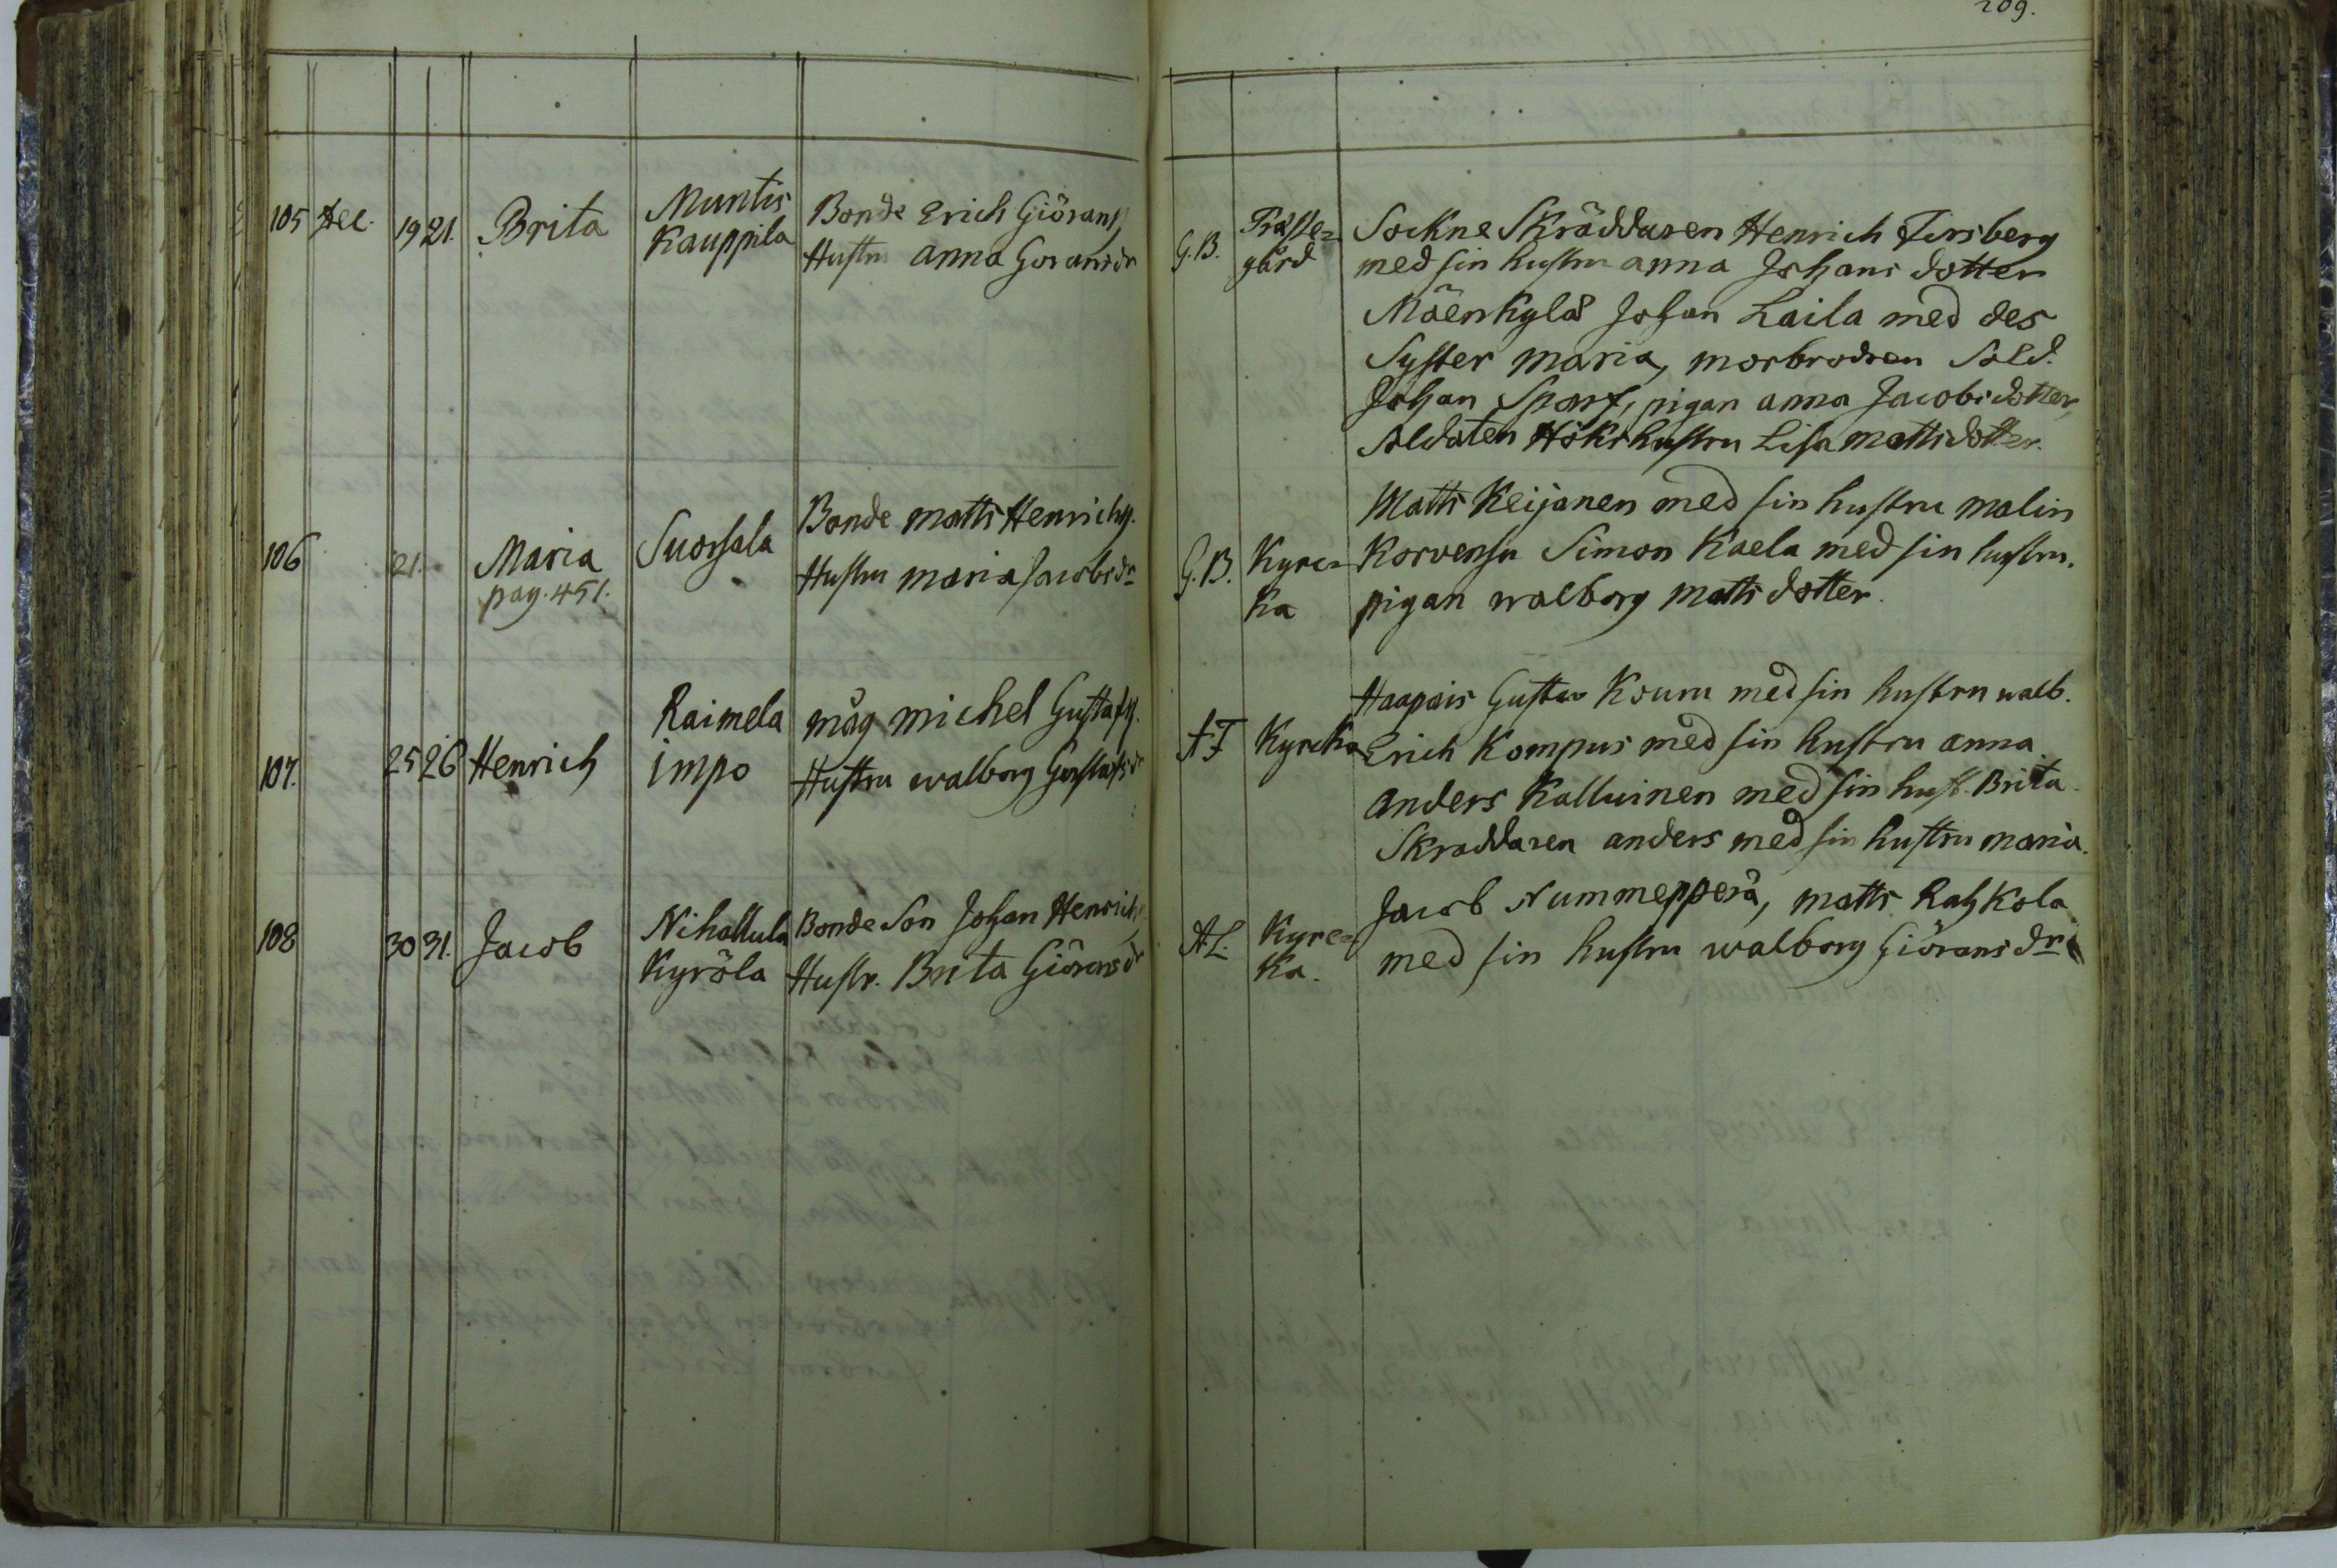 209.
105 Dec. 19 21. Brita
Muntis
Kauppila
Bonde Erich Giörans
Hustru Anna Goransdr
G.B.
Präste=
gård
Sockne Skräddaren Henrich Firsberg
med sin hustru anna Johans dotter
Mäenkylä Johan Laila med des
Syster maria, morbrodren Sold.
Johan Sparf, pigan anna Jacobsdotter,
Soldaten Höks hustru Lisa mattsdotter.
106 21. Maria
pag. 451.
Suorsala
Bonde matts Henrichs.
Hustru maria Jacobsdr
G.B.
Kyrc=
ka
Matts Keijanen med sin hustru malin
Korvensu Simon Kaela med sin hustru.
pigan walborg matts dotter.
107. 25 26 Henrich
Raimela
impo
måg michel Gustafs.
Hustru walborg Gustafsdr
A F Kyrcka
Haapais Gustav Kouru med sin hustru walb.
Erich Kompus med sin hustru anna
anders Kalluinen med sin hust. Brita
Skraddaren anders med sin hustru maria.
108 30 31. Jacob
Nihattula
Kyröla
Bonde Son Johan Henrichs
Hustr. Brita Giöransdr
AL.
Kyrc=
ka.
Jacob Nummenperä, matts Rahkola
med sin hustru walborg Giörans dr